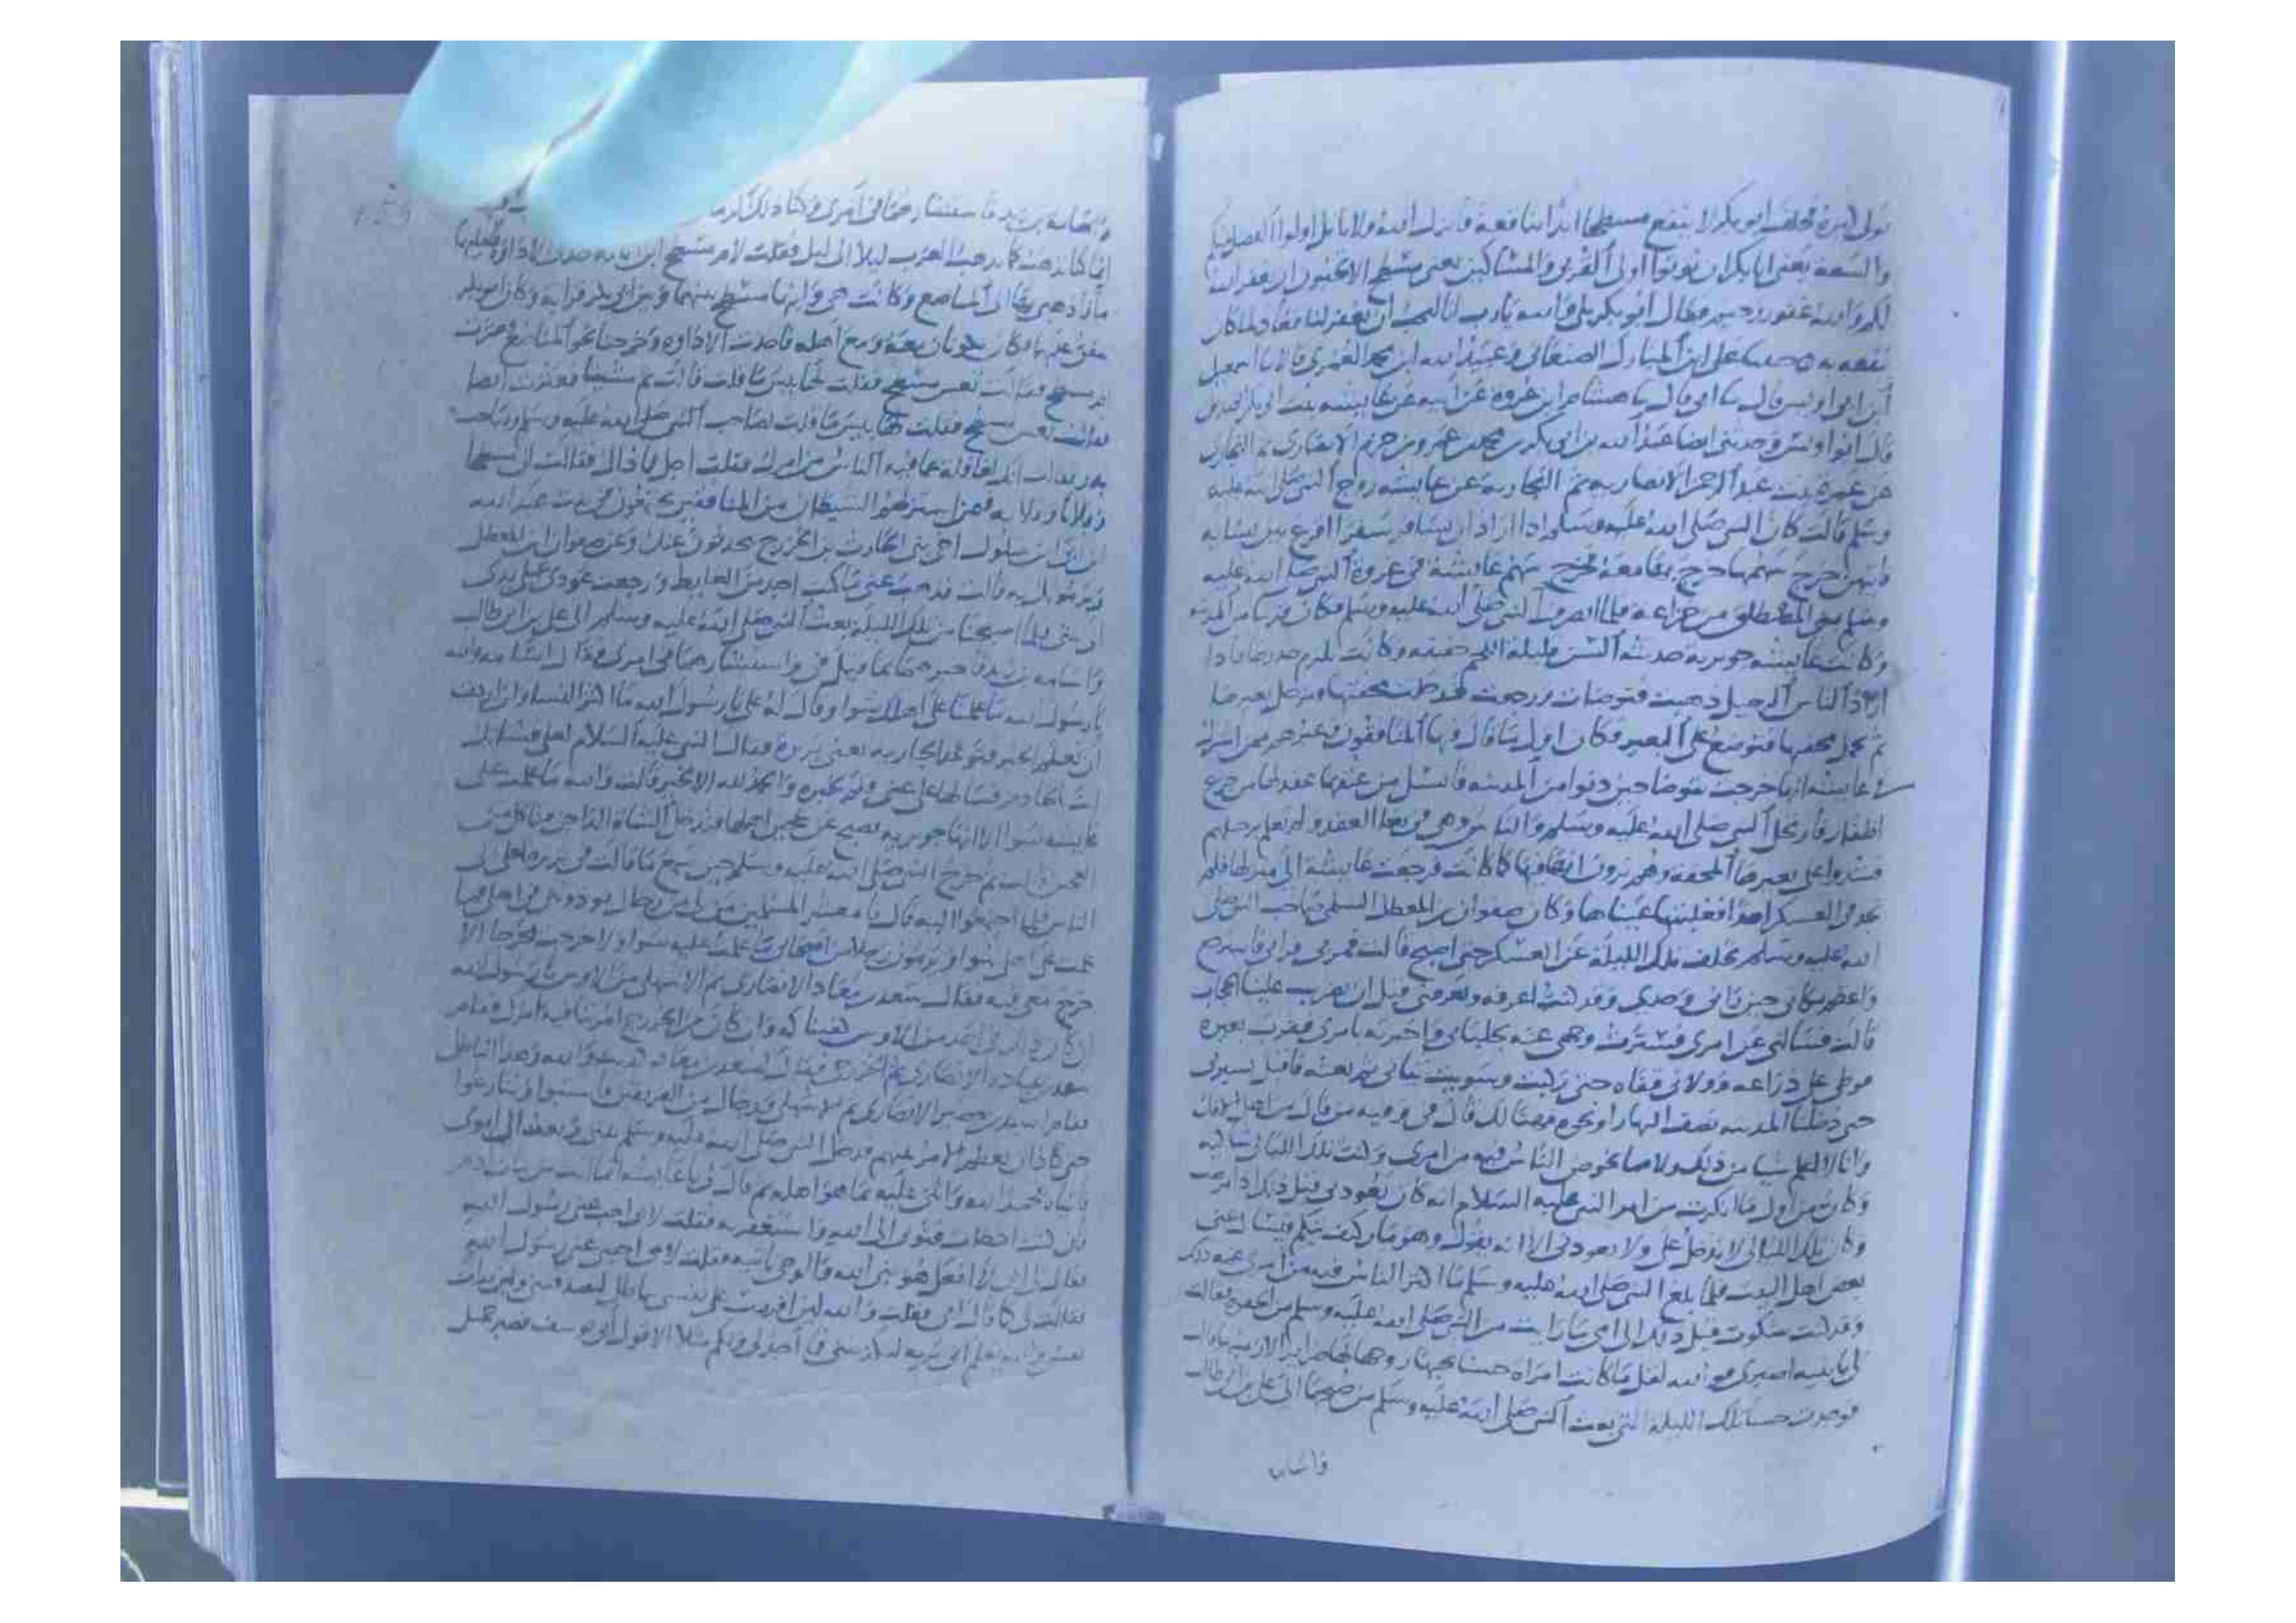 تولى كبره فحلف ابو بكر لا ينفع مسطحا ابدا بنافعة فانزل الله ولا ياتل اولوا الفضل منكم
والسعة يعنى ابا بكر ان يوتوا اولى القربى والمساكين يعنى مسطح الا تحبون ان يغفر الله
لكم والله غفور رحيم فقال ابو بكر بلى والله يا رب انا لنحب ان يغفر لنا فعاد لما كان
نفعه به على ابن المبارك الصنعانى وعبيد الله ابن محمد العمرى قالا نا اسمعيل
ابن ابى اويس قال نا ابى قال نا هشام ابن عروه عن ابيه عن عايشه بنت ابى بكر
قال ابو اويس وحدثنى ايضا عبد الله بن ابى بكر بن محمد بن عمرو بن حزم الانصارى ثم النجارى
عن عمرة بنت عبد الرحمن الانصاريه ثم النجاريه عن عايشه زوج النبى صلى الله عليه
وسلم قالت كان النبى صلى الله عليه وسلم اذا اراد ان يسافر سفرا اقرع بين نسايه
فايتهن خرج سهمها خرج بها معه فخرج سهم عايشة فى غزوة النبى صلى الله عليه
وسلم بنى المصطلق من خزاعه فلما انصرف النبى صلى الله عليه وسلم فكان قريبا من المدينه
وكانت عايشه جويريه حديثه السن قليلة اللحم خفيفه وكانت تلزم خدرها فاذا
اراد الناس الرحيل ذهبت فتوضات ورجعت فدخلت محفتها فيرحل بعيرها
ثم تحمل محفتها فتوضع على البعير فكان اول ما قال فيها المنافقون وغيرهم ممن اشترك
فى عايشه انها خرجت تتوضا حين دنوا من المدينه فانسل من عنقها عقد لها من جزع
اظفار فارتحل النبى صلى الله عليه وسلم والناس وهى فى بغا العقد ولم تعلم برحيلهم
فشدوا على بعيرها المحفه وهم يرون انها فيها كما كانت فرجعت عايشة الى منزلها فلم
تجد فى العسكر احدا فغلبتها عيناها وكان صفوان بن المعطل السلمى صاحب النبى صلى
الله عليه وسلم تخلف تلك الليلة عن العسكر حتى اصبح قالت فمر بى فرانى فاسترجع
واعظم مكانى حين رانى وحدى وقد كنت اعرفه ويعرفنى قبل ان يضرب علينا الحجاب
قالت فسالنى عن امرى فسترت وجهى عنه بجلبابى واخبرته بامرى فقرب بعيره
فوطى على ذراعه فولانى قفاه حتى ركبت وسويت ثيابى ثم بعثه فاقبل يسير بى
حتى دخلنا المدينه نصف النهار او نحوه فهنالك قال فى وفيه من قال من اهل الافك
وانا لا اعلم شيا من ذلك ولا مما يخوض الناس فيه من امرى وكنت تلك الليالى شاكيه
وكان من اول ما انكرت من امر النبى عليه السلام انه كان يعودنى قبل ذلك اذا مرضت
وكان تلك الليالى لا يدخل على ولا يعودنى الا انه يقول وهو مار كيف تيكم فيسال عنى
بعض اهل البيت فلما بلغ النبى صلى الله عليه وسلم ما اكثر الناس فيه من امرى غمه ذلك
وقد كنت شكوت قبل ذلك الى امى ما رايت من النبى صلى الله عليه وسلم من الجفوة فقالت
لى يا بنيه اصبرى فوالله لقل ما كانت امراة حسنا يحبها زوجها لها ضراير الا رمينها
فوجدت حسا تلك الليلة التى بعث النبى صلى الله عليه وسلم من صبحها الى على بن ابى طالب
واسامه
واسامه بن زيد فاستشارهما فى امرى وكنا ذلك
انما كنا نذهب كما يذهب العرب ليلا الى ليل فقلت لام مسطح
اذهبى بنا الى المناصع وكانت هى وابنها مسطح بينهما وبين ابى بكر قرابه وكان ابو بكر
ينفق عليهما فكانا يكونان معه ومع اهله فاخذت الاداوه وخرجنا نحو المناصع فعثرت
ام مسطح فقالت تعس مسطح فقلت لها بيس ما قلت قالت ثم مشينا فعثرت ايضا
فقالت تعس مسطح فقلت لها بيس ما قلت لصاحب النبى صلى الله عليه وسلم وصاحب
بدر فقالت انك لغافلة عما فيه الناس من امرك فقلت اجل فما ذاك فقالت ان مسطحا
وفلانا وفلانه فيمن استزلهم الشيطان من المنافقين يجتمعون فى بيت عبد الله
ابن ابى ابن سلول اخى بنى الحارث بن الخزرج يحدثون عنك وعن صفوان ابن المعطل
يرمونك به قالت فذهب عنى ما كنت اجد من الغايط ورجعت عودى على بدى
الى بيتى فلما اصبحنا من تلك الليلة بعث النبى صلى الله عليه وسلم الى على بن ابى طالب
واسامه بن زيد فاخبرهما بما قيل فى واستشارهما فى امرى فقال اسامه والله
يا رسول الله ما علمنا على اهلك سوا وقال له على يا رسول الله ما اكثر النسا وان اردت
ان تعلم الخبر فتوعد الجاريه يعنى بريرة فقال النبى عليه السلام لعلى فشانك
انت بالخادم فسالها على عنى فلم تخبره والحمد لله الا بخير قالت والله ما علمت على
عايشه سوا الا انها جويريه تصبح عن عجين اهلها فتدخل الشاة الداجن فتاكل من
العجين قالت ثم خرج النبى صلى الله عليه وسلم حين سمع ما قالت فى بريره لعلى الى
الناس فلما اجتمعوا اليه قال يا معشر المسلمين من لى من رجال يوذوننى فى اهلى فما
علمت على اهلى سوا ويرمون رجلا من اصحابى ما علمت عليه سوا ولا خرجت مخرجا الا
خرج معى فيه فقال سعد بن معاذ الانصارى ثم الاشهلى من الاوس يا رسول الله
ان كان ذلك فى احد من الاوس كفيناكه وان كان من الخزرج امرتنا فيه بامرك وقام
سعد بن عباده الانصارى ثم الخزرجى فقال لسعد بن معاذ كذبت والله وهذا الباطل
فقام اسيد بن حضير الانصارى ثم الاشهلى ورجال من الفريقين فاستبوا وتنازعوا
حتى كاد ان يعظم الامر بينهم فدخل النبى صلى الله عليه وسلم بيتى وبعث الى ابوى
فاتياه فحمد الله واثنى عليه بما هو اهله ثم قال لى يا عايشه انما انت من بنات ادم
فان كنت اخطات فتوبى الى الله واستغفريه فقلت لابى اجب عنى رسول الله
فقال لى ابى لا افعل هو نبى الله والوحى ياتيه فقلت لامى اجيبى عنى رسول الله
فقالت لى كما قال ابى فقلت والله لين اقررت على نفسى بباطل لتصدقننى ولين برات
نفسى والله يعلم انى بريه لتكذبننى فما اجد لى ولكم مثلا الا قول ابى يوسف فصبر جميل